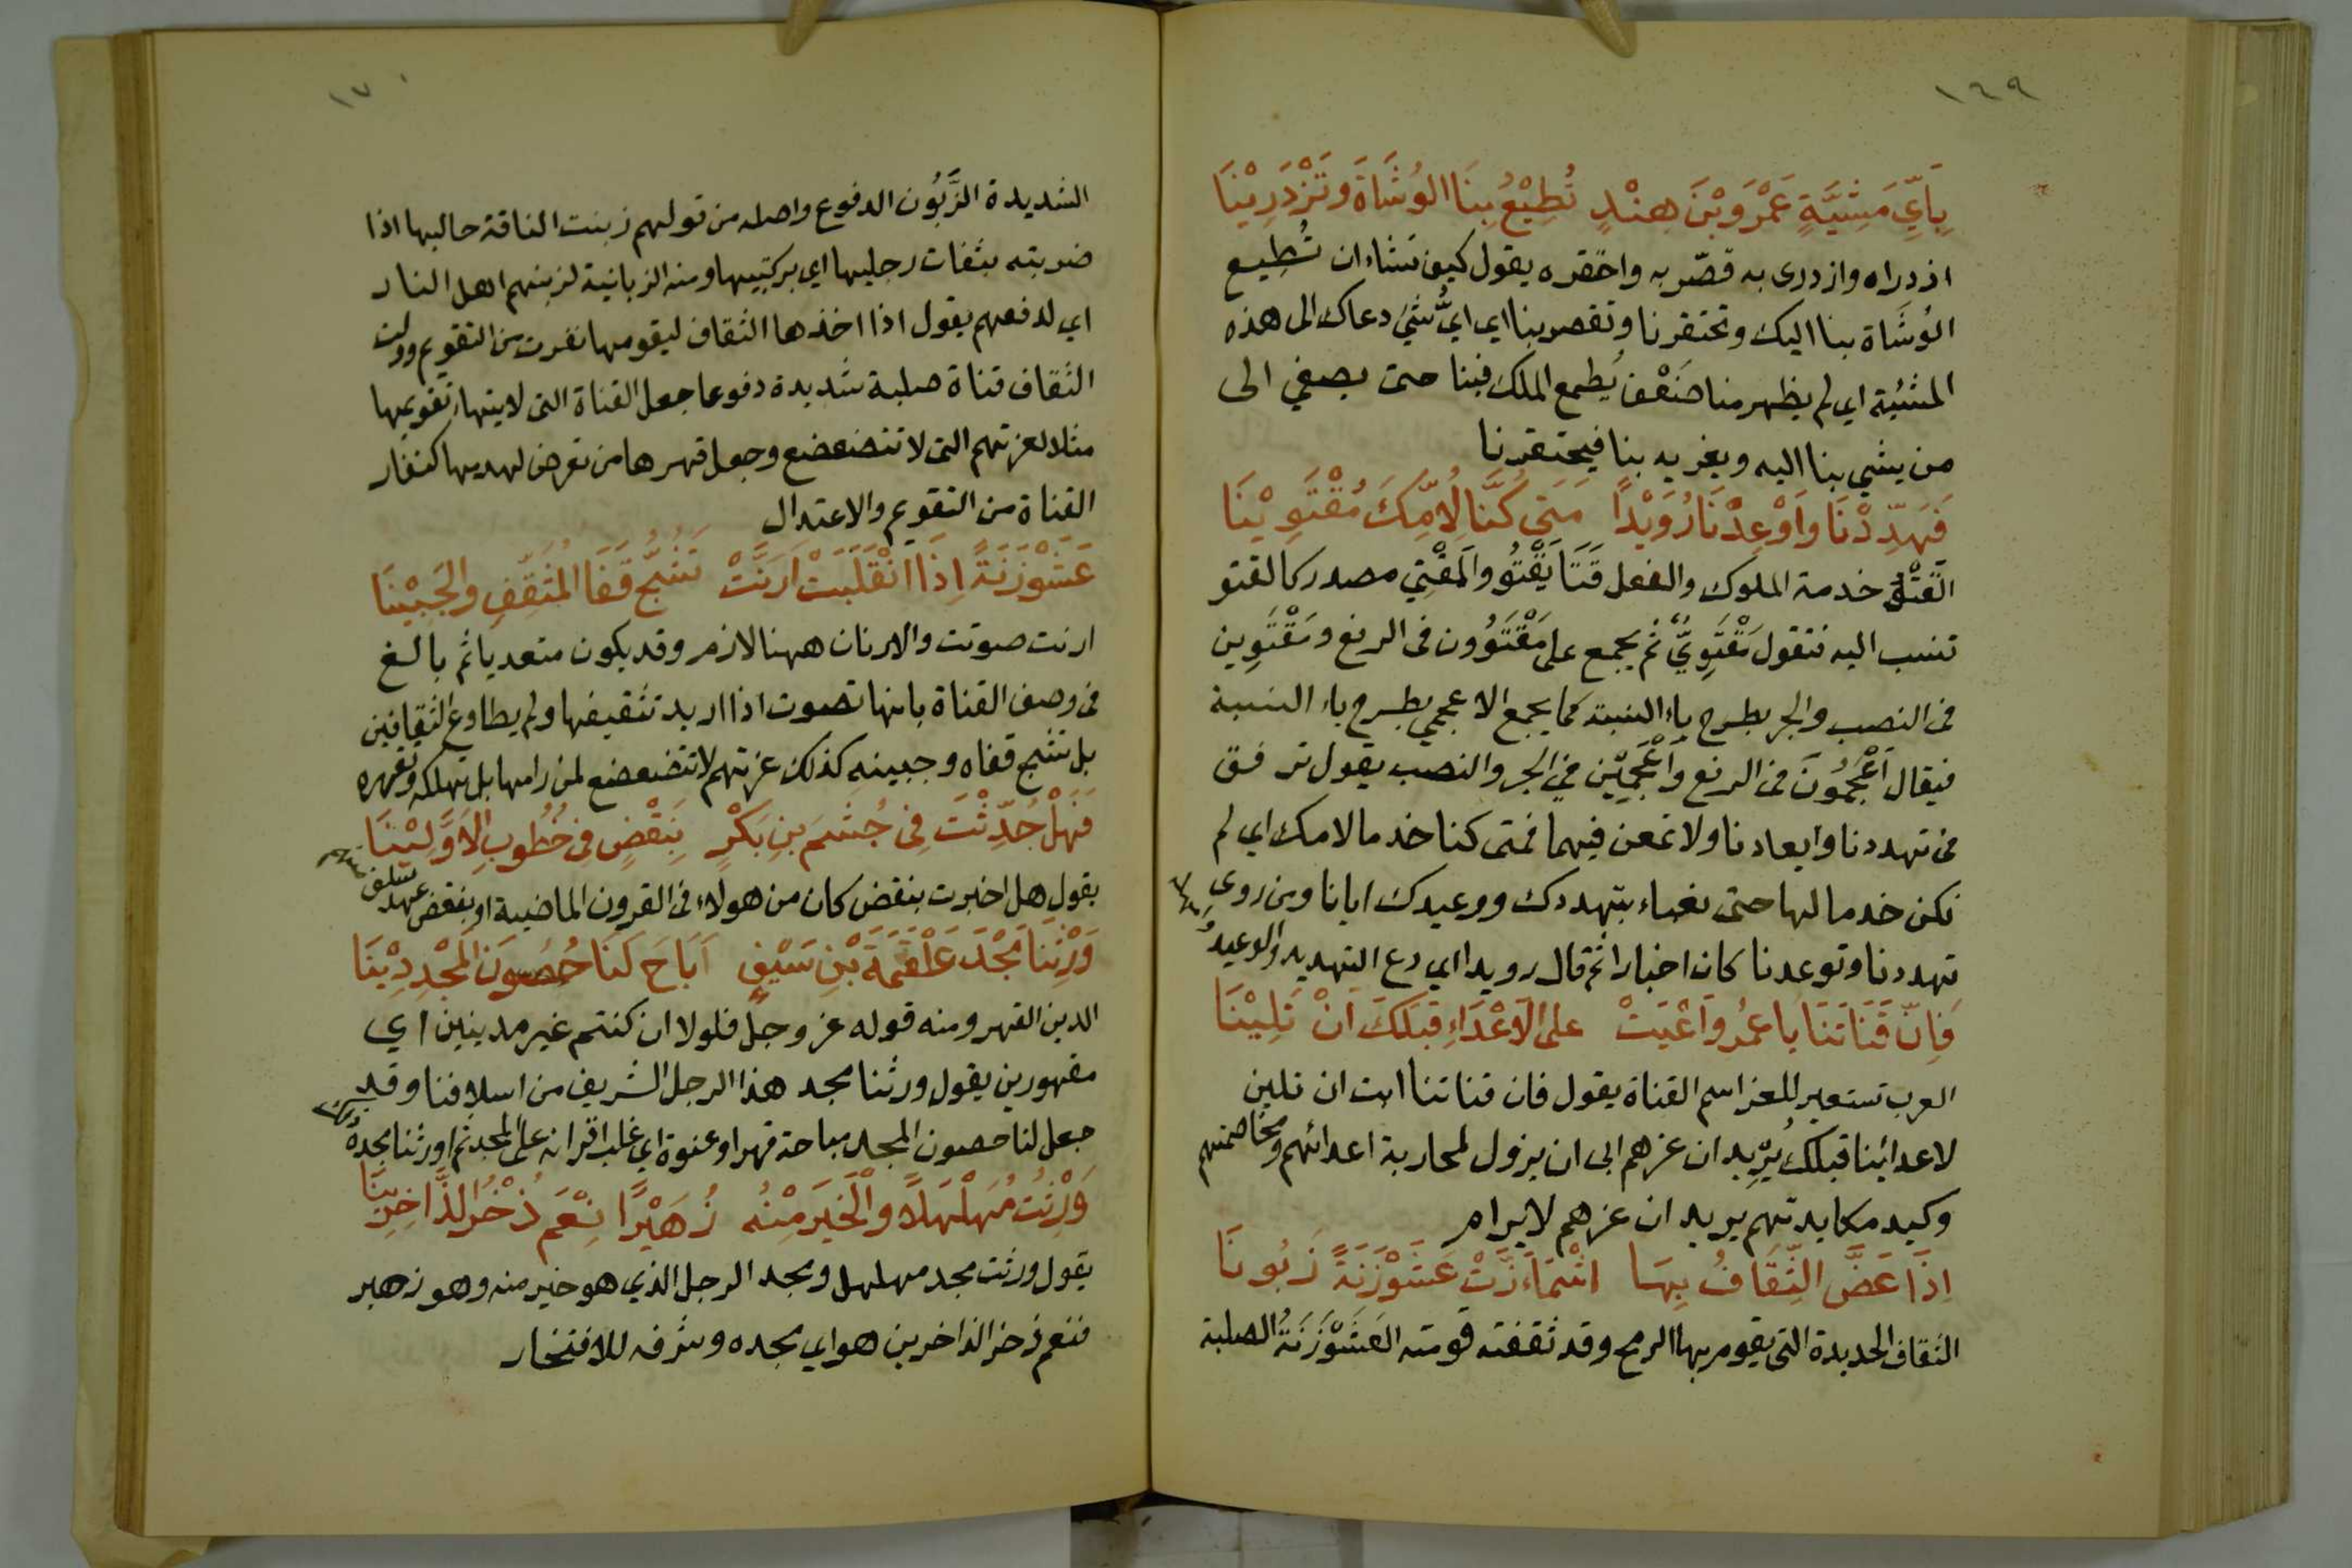 ١٦٩
بِاَيِّ مَشِيَّةٍ عَمْرَوبْنَ هِنْدٍ تُطِيْعُ بِنَا الوُشَاةَ وتَزْدَرِيْنَا
ازدراه وازدرى به قصّر به واحتقره يقول كيف تشاء ان تُطِيع
الوُشَاة بنا اليك وتحتقرنا وتقصر بنا اي ايُّ شئ دعاك الى هذه
المشئية اي لم يظهر منا ضَعْف يُطمع الملك فينا حتى يصغي الى
من يشي بنا اليه ويغريه بنا فيحتقرنا
فَهَدِّدْنَا واَوْعِدْنَا رُوَيْدًا مَتَى كُنَّا لِاُمِّكَ مُقْتَوِيْنَا
القَتْو خدمة الملوك والفعل قَتَا يَقْتُو والمَقْتِي مصدر كالقتو
تنسب اليه فتقول مَقْتَوِيٌّ ثم يجمع على مَقْتَوُون فى الرفع ومَقْتَوِين
فى النصب والجر بطرح ياء النسبة كما يجمع الاعجمي بطرح ياء النسبة
فيقال اَعْجَمُونَ فى الرفع واَعْجَمِيْن في الجر والنصب يقول ترفق
فى تهددنا وايعادنا ولا تمعن فيهما فمتى كنا خدما لامك اي لم
نكن خدما لها حتى نعباء بتهددك ووعيدك ايانا ومن روى
تهددنا وتوعدنا كان اخبارا ثم قال رويدا اي دع التهديد والوعيدُ
فَاِنّ قَنَاتَنَا يا عمرُو اَعْيَتْ على الاَعْدَاءِ قبَلَكَ اَنْ تَلِيْنَا
العرب تستعير للعز اسم القناة يقول فان قناتنا ابت ان تلين
لاعدائنا قبلك يُرِيد ان عزهم ابى ان يزول لمحاربة اعدائهم ومخاصمتهم
وكيد مكايدتهم يريد ان عزهم لايرام
اِذَا عَضَّ الثِّقَافُ بِهَا اشْمَاَزَّتْ عَشَوْزَنَةً زَبُونَا
الثقاف الحديدة التى يقوم بها الرمح وقد ثقفته قومته العَشَوْزَنَةُ الصلبة
١٧٠
الشديدة الزَّبُون الدفوع واصله من قولهم زبنت الناقة حالبها اذا
ضربته بثفنات رجليها اي بركبتيها ومنه الزبانية لزبنهم اهل النار
اي لدفعهم يقول اذا اخذها الثقاف ليقومها نفرت من التقويم وولت
الثقاف قناة صلبة شديدة دفوعا جعل القناة التى لايتهيا تقويمها
مثلا لعزتهم التى لا تتضعضع وجعل قهرها من تعرض لهدمها كنفار
القناة من التقويم والاعتدال
عَشَوْزَنَةً اِذَا انْقَلَبَتْ اَرَنَّتْ تَشُجُّ قَفَا المُثَقِّفِ والجَبِيْنَا
ارنت صوتت والارنان ههنا لازم وقد يكون متعديا ثم بالغ
فى وصف القناة بانها تصوت اذا اريد تثقيفها ولم يطاوع الثقافين
بل تشج قفاه وجبينه كذلك عزتهم لاتتضعضع لمن رامها بل تهلكه وتقهره
فَهَلْ حُدِّثْتَ فِى جُشَمَ بنِ بَكْرٍ بِنَقْضٍ فى خُطُوبِ الاَوَّلِيْنَا
يقول هل اخبرت بنقض كان من هولاء فى القرون الماضية او بنقض عهد سلف
وَرِثْنَا مَجْدَ عَلْقَمَةَ بْنِ سَيْفٍ اَبَاحَ لَنَا حُصُونَ المَجْدِ دِيْنَا
الدين القهر ومنه قوله عز وجل فلولا ان كنتم غير مدينين اي
مقهورين يقول ورثنا مجد هذا الرجل الشريف من اسلافنا وقد
جعل لنا حصون المجد مباحة قهرا وعنوة اي غلب اقرانه على المجد ثم اورثنا مجده
وَرِثْتُ مُهَلْهِلاً والْخَيرَ مِنْهُ زُهَيْرًا نِعْمَ ذُخْرُ الذَّاخِرِينَا
يقول ورثت مجد مهلهل ومجد الرجل الذي هو خير منه وهو زهير
فنعم ذخر الذاخرين هو اي مجده وشرفه للافتخار